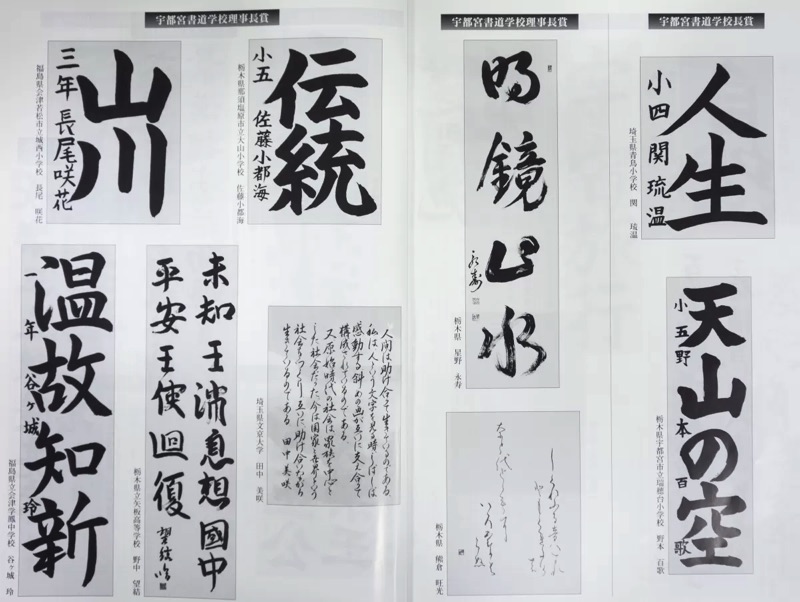 宇都宮書道学校長賞
人生
小四 関琉温
埼玉県青鳥小学校 関 琉温
天山の空
小五 野本百歌
栃木県宇都宮市立瑞穂台小学校 野本 百歌
宇都宮書道学校理事長賞
明鏡止水
永寿
栃木県 星野 永寿
栃木県 熊倉 旺光
宇都宮書道学校理事長賞
伝統
小五 佐藤小都海
栃木県那須塩原市立大山小学校 佐藤小都海
山川
三年 長尾咲花
福島県会津若松市立城西小学校 長尾 咲花
人間は助け合って生きているのである
私は人という文字を見る時しばしば
感動する斜めの画が互いに支え合って
構成されているのである
又原始時代の社会は家族を中心と
した社会だった今は国家と世界という
社会をつくり互いに助け合いながら
生きているのである 田中美咲
埼玉県文京大学 田中 美咲
未知王濡息想國中
平安王使迴復 望結臨
栃木県立矢板高等学校 野中 望結
温故知新
一年 谷ヶ城玲
福島県立会津学鳳中学校 谷ヶ城 玲